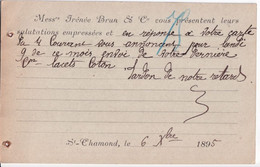 Mess⁽ʳˢ⁾ Irénée Brun & Cⁱᵉ vous présentent leurs
salutations empressées et en réponse à votre carte
du 4 courant vous annonçons pour lundi
9 de ce mois envoi de votre dernière
Cde lacets coton
Pardon de notre retard
St-Chamond, le 6 Xbre 1895